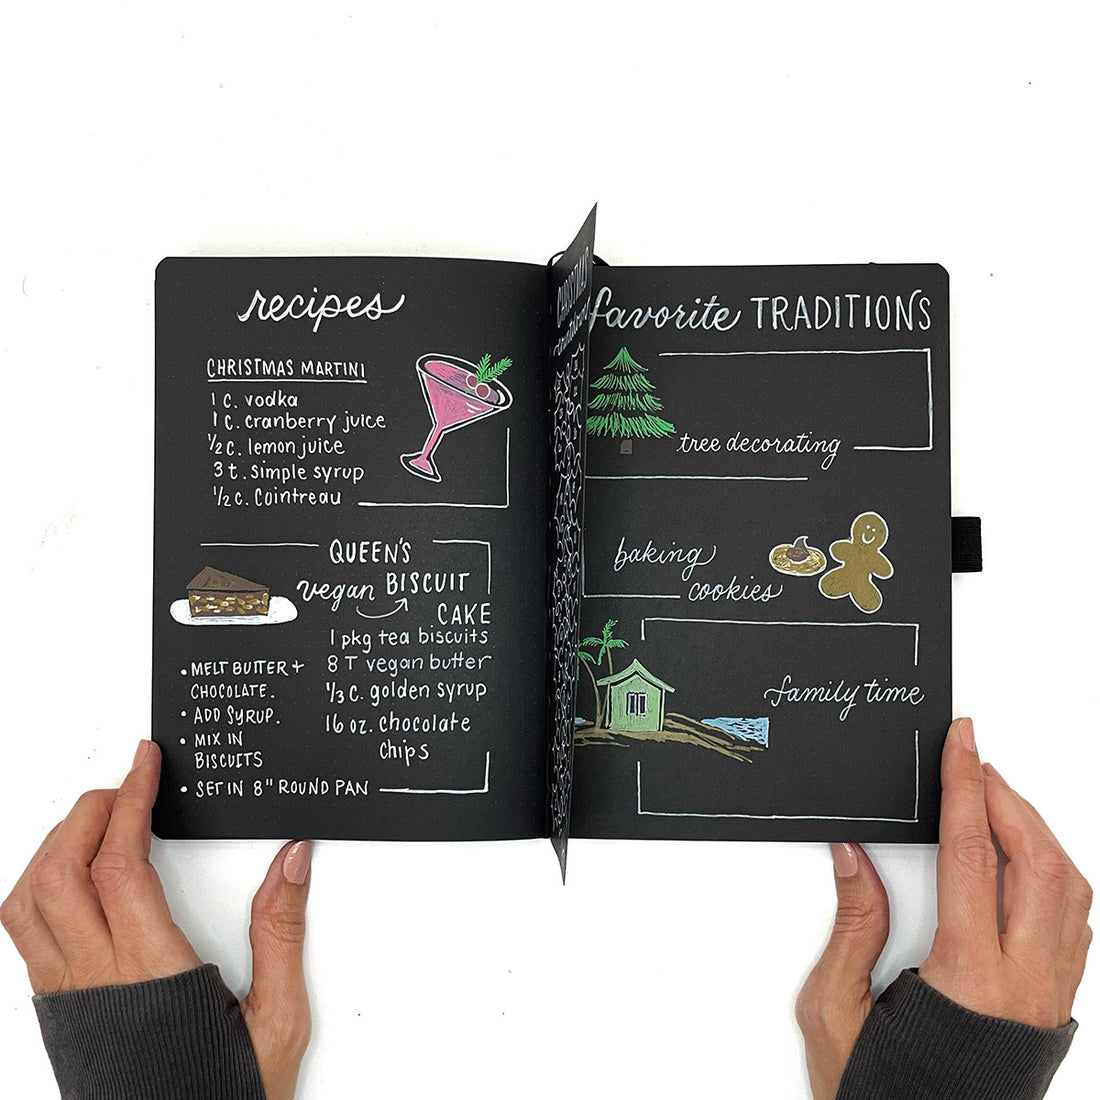 recipes
CHRISTMAS MARTINI
1 C. vodka
1 C. cranberry juice
1/2 C. lemon juice
3 t. simple syrup
1/2 C. Cointreau
QUEEN'S
vegan BISCUIT
CAKE
1 pkg tea biscuits
8 T vegan butter
1/3 C. golden syrup
16 oz. chocolate
chips
• MELT BUTTER +
CHOCOLATE.
• ADD SYRUP.
• MIX IN
BISCUITS
• SET IN 8" ROUND PAN
favorite TRADITIONS
tree decorating
baking
cookies
family time